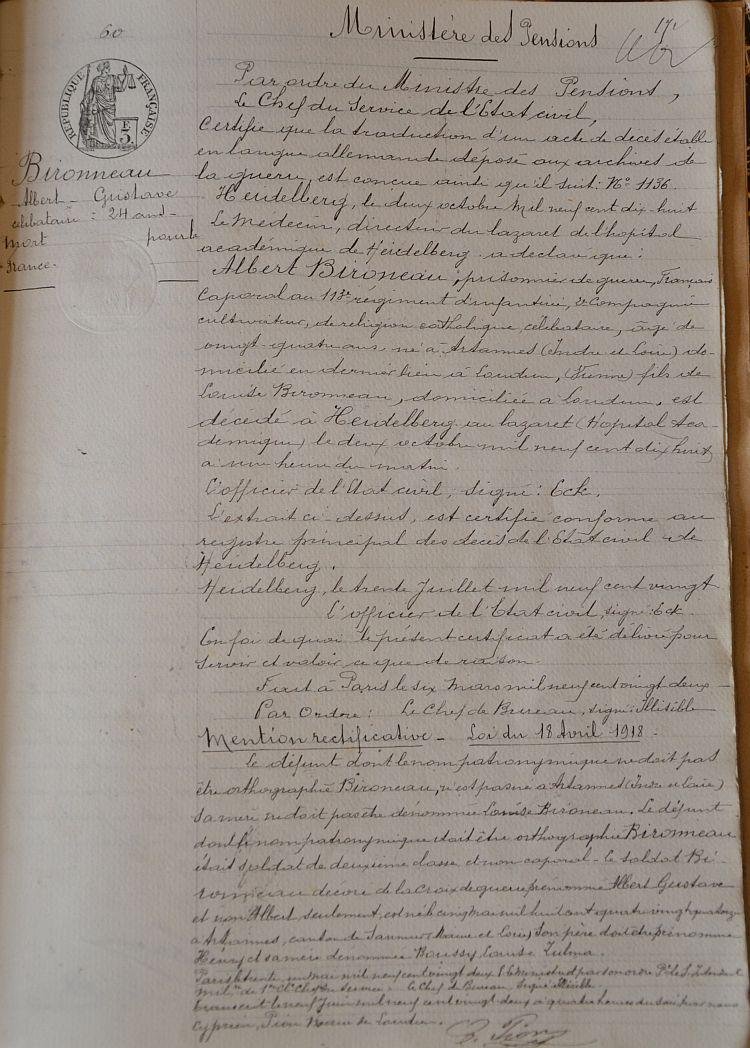 60
17
Ministère des Pensions
RÉPUBLIQUE FRANÇAISE
Bironneau
Albert - Gustave
célibataire : 24 ans -
mort pour la
France.
Par ordre du Ministre des Pensions,
Le Chef du Service de l'Etat civil,
Certifie que la traduction d'un acte de décès établi
en langue allemande déposé aux archives de
la guerre, est concue ainsi qu'il suit : N° 1136.
Heidelberg, le deux octobre mil neuf cent dix-huit
Le Médecin, directeur du lazaret de l'hopital
académique de Heidelberg a déclaré que :
Albert Bironeau, prisonnier de guerre, Français
Caporal au 113e régiment d'infanterie, 2e Compagnie
cultivateur, de religion catholique, célibataire, agé de
vingt-quatre ans né à Artannes (Indre et Loire) do-
micilié en dernier lieu à Loudun, (Vienne) fils de
Louise Bironneau, domiciliée à Loudun, est
décédé à Heidelberg au lazaret (Hopital Aca-
démique) le deux octobre mil neuf cent dix huit
à une heure du matin.
L'officier de l'Etat civil, signé : Eck.
L'extrait ci-dessus, est certifié conforme au
registre principal des décès de l'Etat civil de
Heidelberg.
Heidelberg, le trente Juillet mil neuf cent vingt
L'officier de l'Etat civil, signé : Eck
En foi de quoi le présent certificat a été délivré pour
servir et valoir ce que de raison.
Fait à Paris le six Mars mil neuf cent vingt deux -
Par Ordre : Le Chef de Bureau, signé : Illisible
Mention rectificative - Loi du 18 Avril 1918 -
Le défunt dont le nom patronymique ne doit pas
être orthographié Bironeau, n'est pas né à Artannes (Indre et Loire)
sa mère ne doit pas être dénommée Louise Bironeau. Le défunt
dont le nom patronymique doit être orthographié Bironneau
était soldat de deuxième classe et non caporal - Le soldat Bi-
ronneau décoré de la croix de guerre prénommé Albert Gustave
et non Albert seulement, est né le cinq mai mil huit cent quatre vingt quatorze
à Artannes, canton de Saumur (Maine et Loire) Son père doit être prénommé
Henry et sa mère dénommée Boussy, Louise Zulma.
Paris le trente un mai mil neuf cent vingt deux P. le Ministre et par son ordre P. le S. Intendant
milre de 1re Cl. Chef du service - le Chef de Bureau signé illisible
transcrit le neuf Juin mil neuf cent vingt deux à quatre heures du soir par nous
Cyprien, Pion Maire de Loudun.
C. Pion